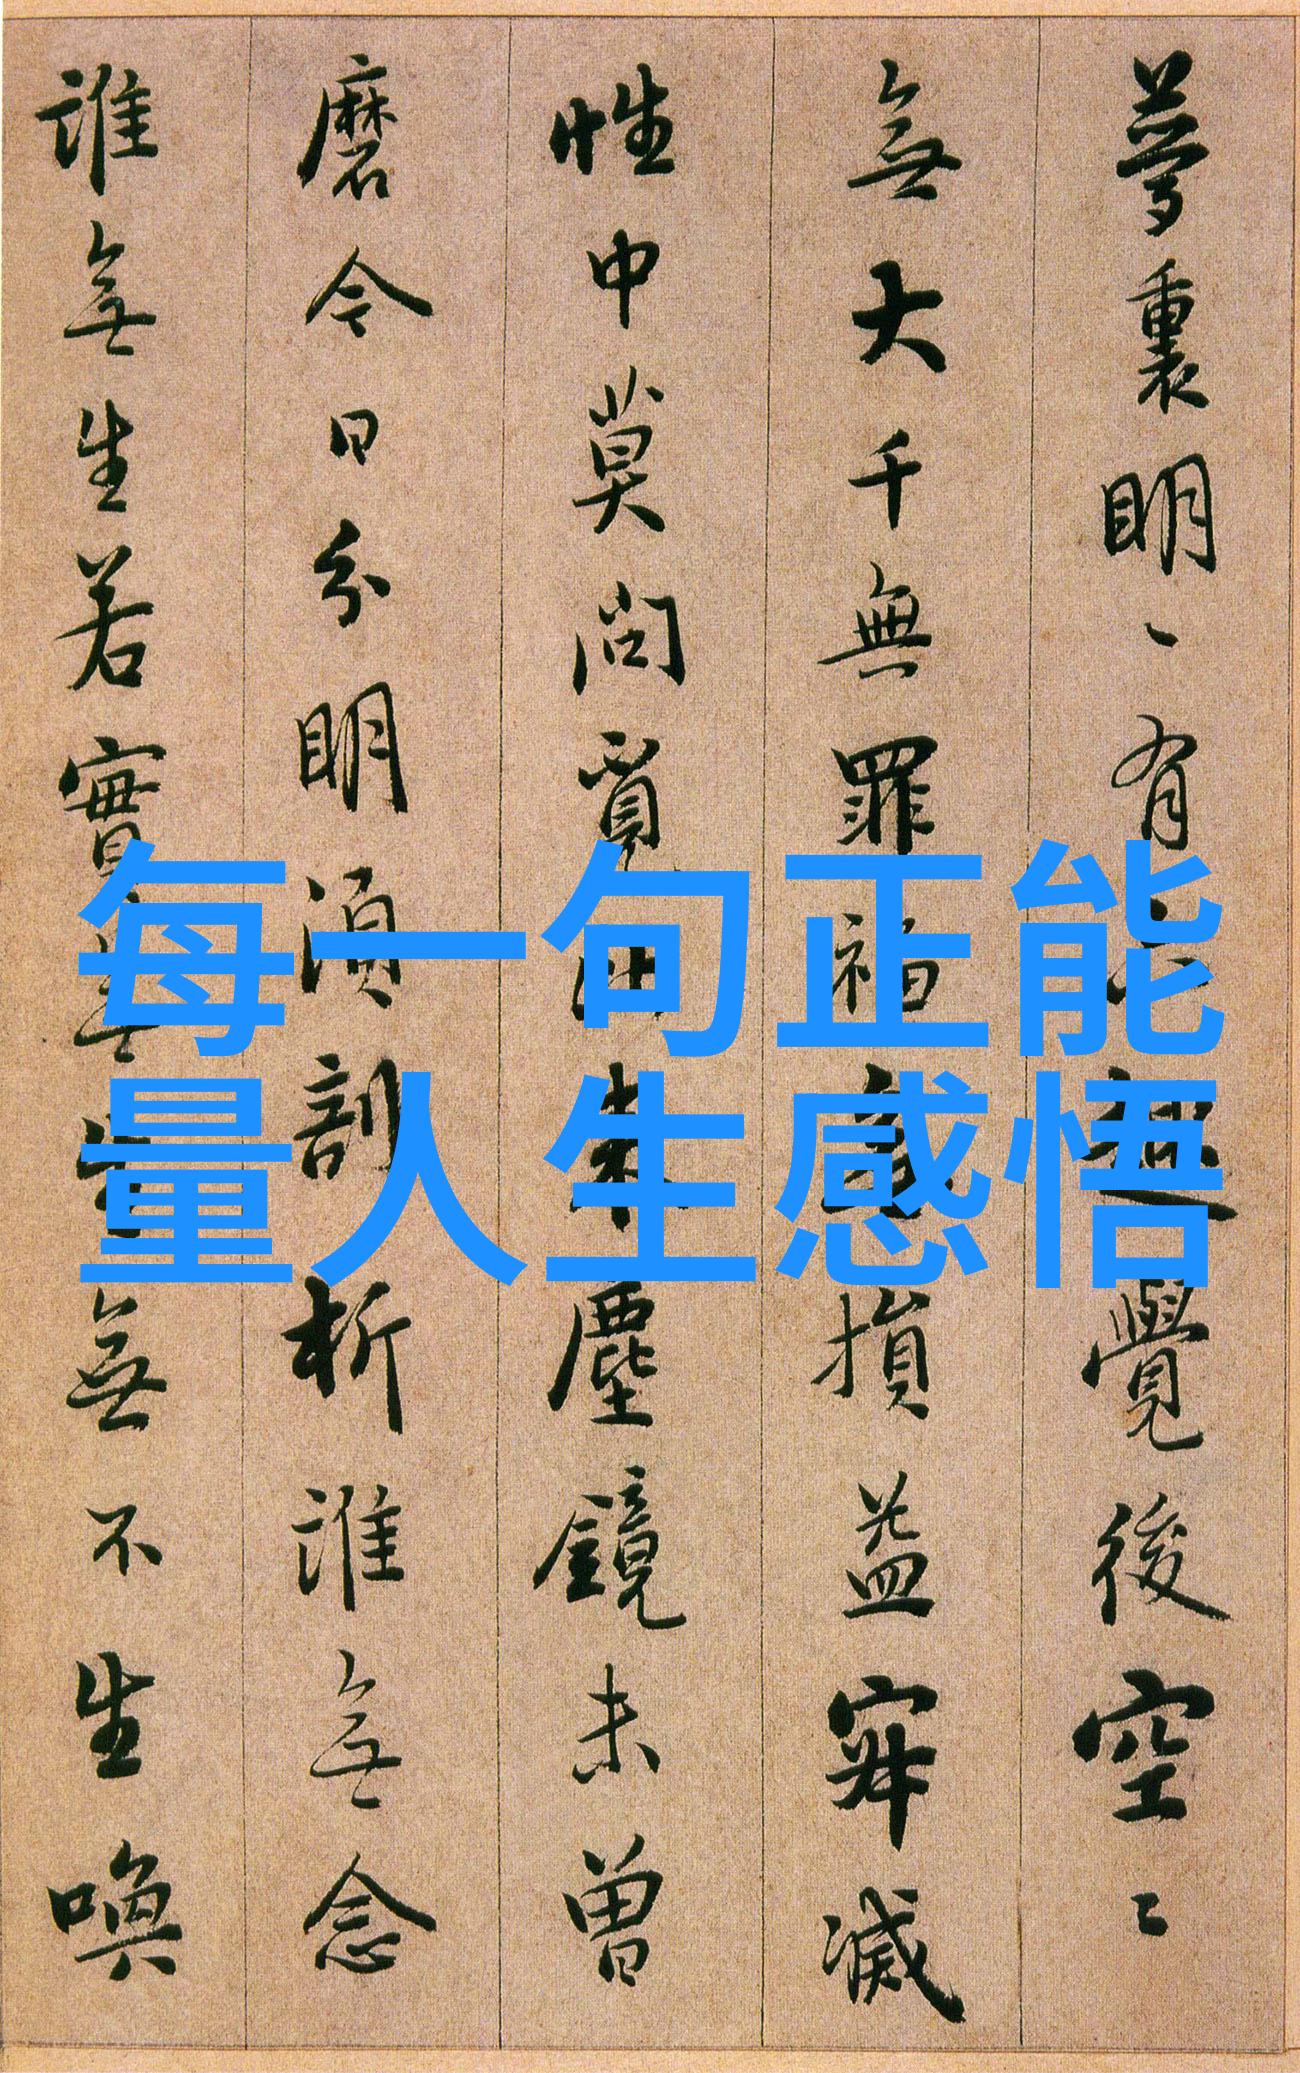 每一句正能
量人生感悟
夢裏明〻有六趣覺後空〻
無大千無罪福無損益寂滅
性中莫問覓比来塵鏡未曾
磨今日分明須剖析誰無念
誰無生若實無生無不生喚